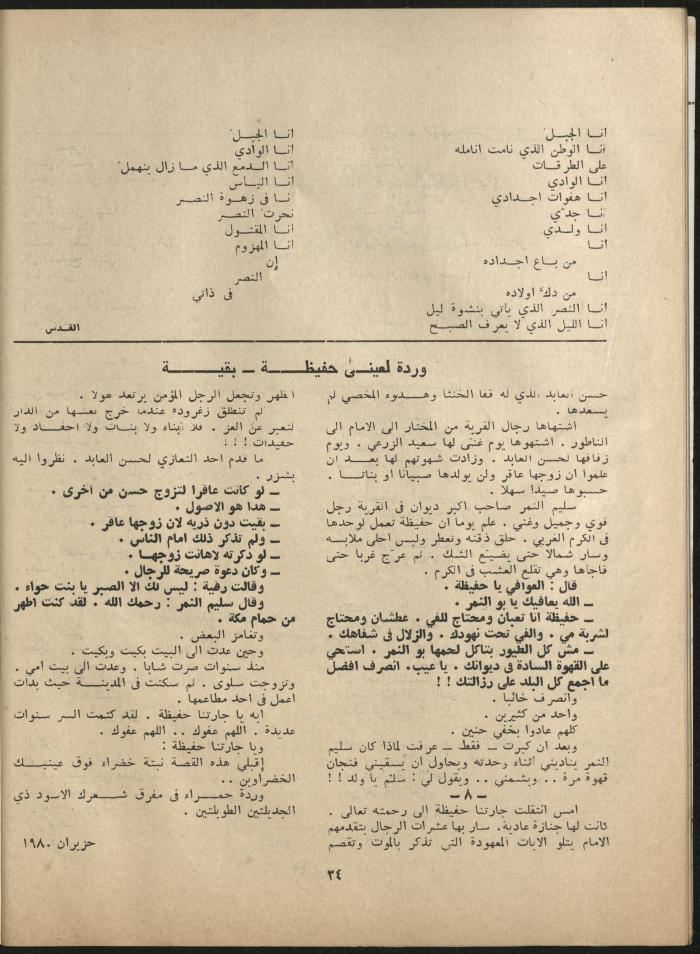 انا الجبل
انا الوطن الذي نامت انامله
على الطرقات
انا الوادي
انا هفوات اجدادي
انا جدّي
انا ولدي
انا
من باع اجداده
انا
من دكّ اولاده
انا النصر الذي يأتي بنشوة ليل
انا الليل الذي لا يعرف الصبح
انا الجبل
انا الوادي
انا الدمع الذي ما زال ينهمل
انا اليأس
نا في زهوة النصر
نحرت النصر
انا المقتول
انا المهزوم
إن
النصر
في ذاتي
القدس
وردة لعيني حفيظة ــ بقية
حسن العابد الذي له قفا الخنثا وهدوء المخصي لم
يسعدها .
اشتهاها رجال القرية من المختار الى الامام الى
الناطور . اشتهوها يوم غنّى لها سعيد الزرعي . ويوم
زفافها لحسن العابد . وزادت شهوتهم لها بعد ان
علموا ان زوجها عاقر ولن يولدها صبيانا او بناتا .
حسبوها صيدا سهلا .
سليم النمر صاحب اكبر ديوان في القرية رجل
قوي وجميل وغني . علم يوما ان حفيظة تعمل لوحدها
في الكرم الغربي . حلق ذقنه وتعطر ولبس احلى ملابسه
وسار شمالا حتى يضيّع الشك . ثم عرّج غربا حتى
فاجأها وهي تقلع العشب في الكرم .
قال : العوافي يا حفيظة .
ــ الله يعافيك يا بو النمر .
ــ حفيظة انا تعبان ومحتاج للفي . عطشان ومحتاج
لشربة مي . والفي تحت نهودك . والزلال في شفاهك .
ــ مش كل الطيور بتاكل لحمها بو النمر . استحي
على القهوة السادة في ديوانك . يا عيب. انصرف افضل
ما اجمع كل البلد على رزالتك ! !
وانصرف خائبا .
واحد من كثيرين .
كلهم عادوا بخفي حنين .
وبعد ان كبرت ــ فقط ــ عرفت لماذا كان سليم
النمر يناديني أثناء وحدته ويحاول ان يسقيني فنجان
قهوة مرة .. ويشمني .. ويقول لي : سلم يا ولد ! !
ــ ٨ ــ
امس انتقلت جارتنا حفيظة الى رحمته تعالى .
كانت لها جنازة عادية. سار بها عشرات الرجال بتقدمهم
الامام يتلو الايات المعهودة التي تذكر بالموت وتقصم
الظهر وتجعل الرجل المؤمن يرتعد هولا .
لم تنطلق زغروده عندما خرج نعشها من الدار
لتعبر عن العز . فلا ابناء ولا بنات ولا احفاد ولا
حفيدات ! ! !
ما قدم احد التعازي لحسن العابد . نظروا اليه
بشزر .
ــ لو كانت عاقرا لتزوج حسن من اخرى .
ــ هذا هو الاصول .
ــ بقيت دون ذريه لان زوجها عاقر .
ــ ولم تذكر ذلك امام الناس .
ــ لو ذكرته لاهانت زوجها .
ــ وكان دعوة صريحة للرجال .
وقالت رفية : ليس لك الا الصبر يا بنت حواء .
وقال سليم النمر : رحمك الله . لقد كنت اطهر
من حمام مكة .
وتغامز البعض .
وحين عدت الى البيت بكيت وبكيت .
منذ سنوات صرت شابا . وعدت الى بيت امي .
وتزوجت سلوى . ثم سكنت في المدينة حيث بدأت
اعمل في احد مطاعمها .
ايه يا جارتنا حفيظة . لقد كتمت السر سنوات
عديدة . اللهم عفوك .. اللهم عفوك .
ويا جارتنا حفيظة :
إقبلي هذه القصة نبتة خضراء فوق عينيك
الخضراوين ..
وردة حمراء في مفرق شعرك الاسود ذي
الجديلتين الطويلتين .
حزيران ١٩٨٠
٣٤